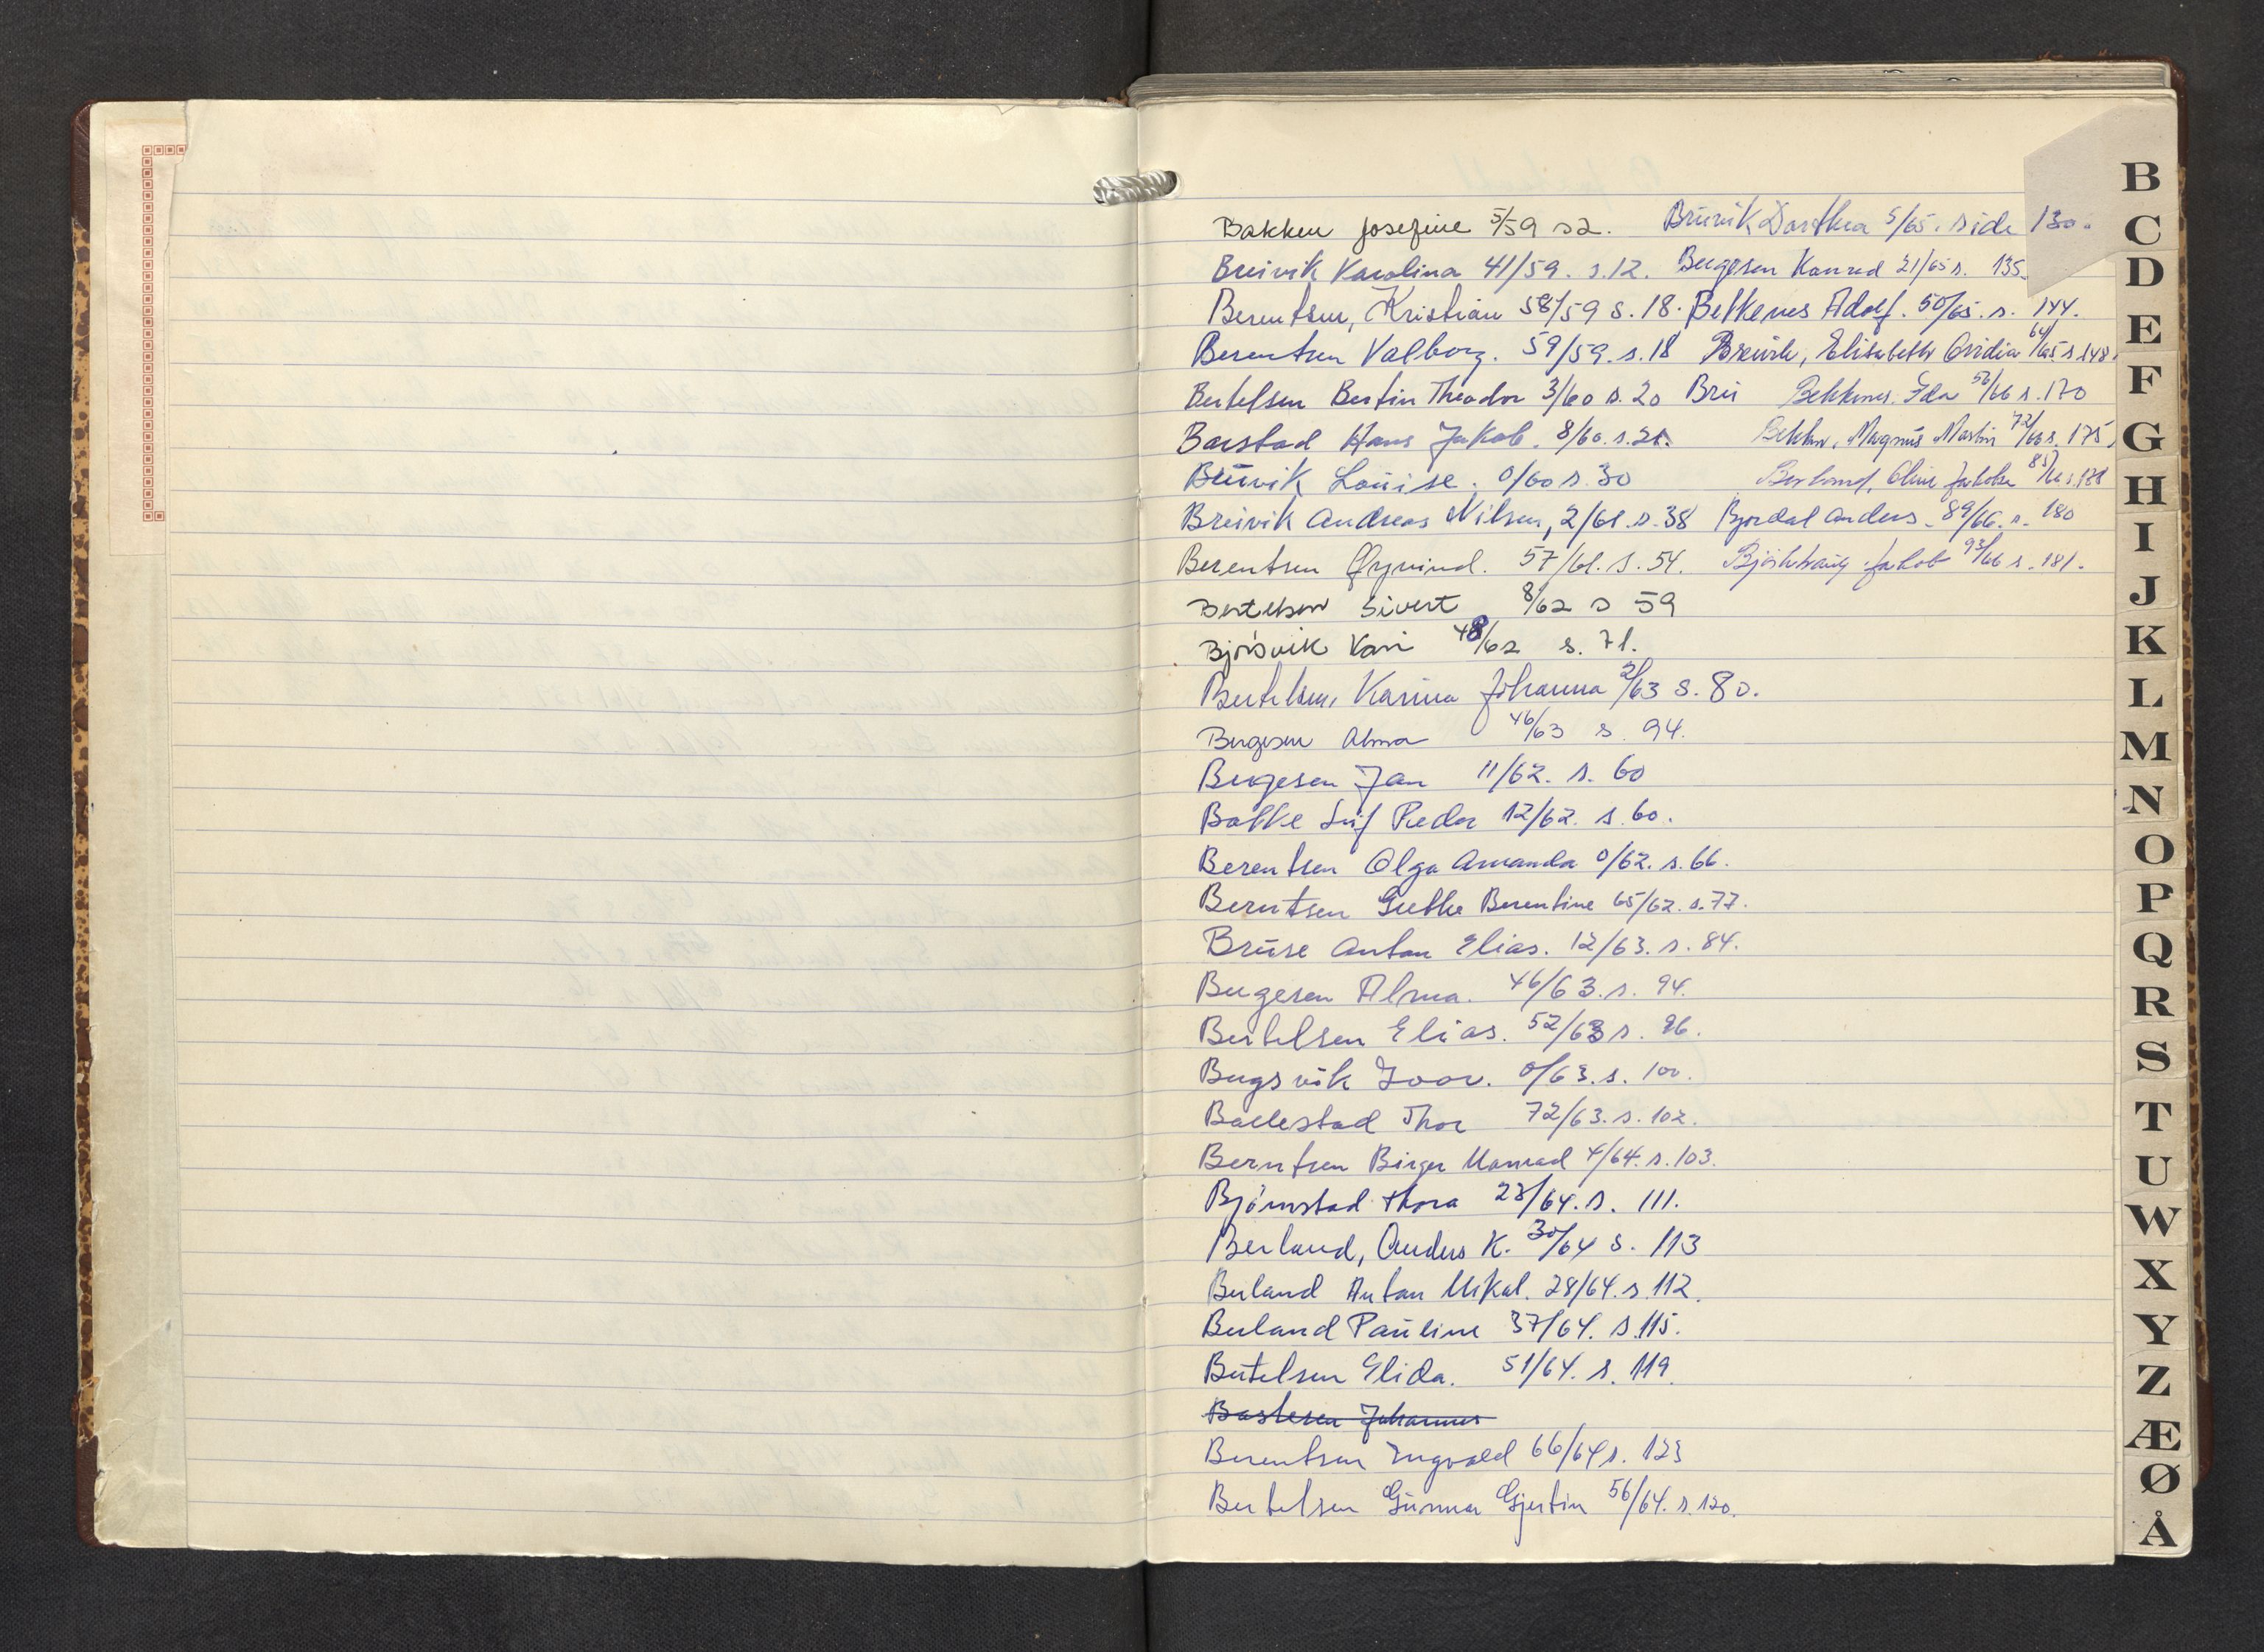 Bakken Josefine 5/59 s 2. Breivik Dorthea 5/65. side 130.
Breivik Karolina 41/59. s. 12. Bergesen Konrad 21/65 s. 135.
Berentsen, Kristian 58/59 s. 18. Bekkenes Adolf. 50/65. s. 144.
Berentsen Valborg. 59/59. s. 18 Breivik, Elisabeth Ovidia 64/65 s 148.
Bertelsen Bertin Theodor 3/60 s. 20 Brei Bekkenes. Ida 52/66 s. 170
Barstad Hans Jakob. 8/60. s. 21. Magnus Martin 72/66 s. 175.
Breivik Louise. 0/60 s. 30 Berland, Oline Jakobe 85/66 s. 178
Breivik Andreas Nilsen, 2/61. s. 38 Bjordal Anders. 89/66. s. 180
Berentsen Øyvind. 57/61. s. 54. Jakob 93/66 s. 181.
Bertelsen Sivert 8/62 s 59
Bjørsvik Kari 48/62 s. 71.
Bertelsen, Karina Johanna 2/63 s. 80.
Bergesen Alma 46/63 s. 94.
Bergesen Jan 11/62. s. 60
Bakke Leif Peder 12/62. s. 60.
Berentsen Olga Amanda 0/62. s. 66.
Berntsen Grethe Berentine 65/62. s. 77.
Bruse Anton Elias. 12/63. s. 84.
Bergesen Alma. 46/63. s. 94.
Bertelsen Elias. 52/63 s. 96.
Bergsvik Ivar. 0/63. s. 100.
Ballestad Thor 72/63. s. 102.
Berntsen Birger Konrad 4/64. s. 103.
Bjørnstad Thora 23/64. s. 111.
Berland, Anders K. 30/64 s. 113
Berland Anton Mikal. 28/64. s. 112.
Berland Pauline 37/64. s. 115.
Bertelsen Elida. 51/64. s. 119.
Bastesen Johannes
Berentsen Ingvald 66/64 s. 123
Bertelsen Gunnar Gjertin 56/64. s. 120.
B
C
D
E
F
G
H
I
J
K
L
M
N
O
P
Q
R
S
T
U
W
X
Y
Z
Æ
Ø
Å